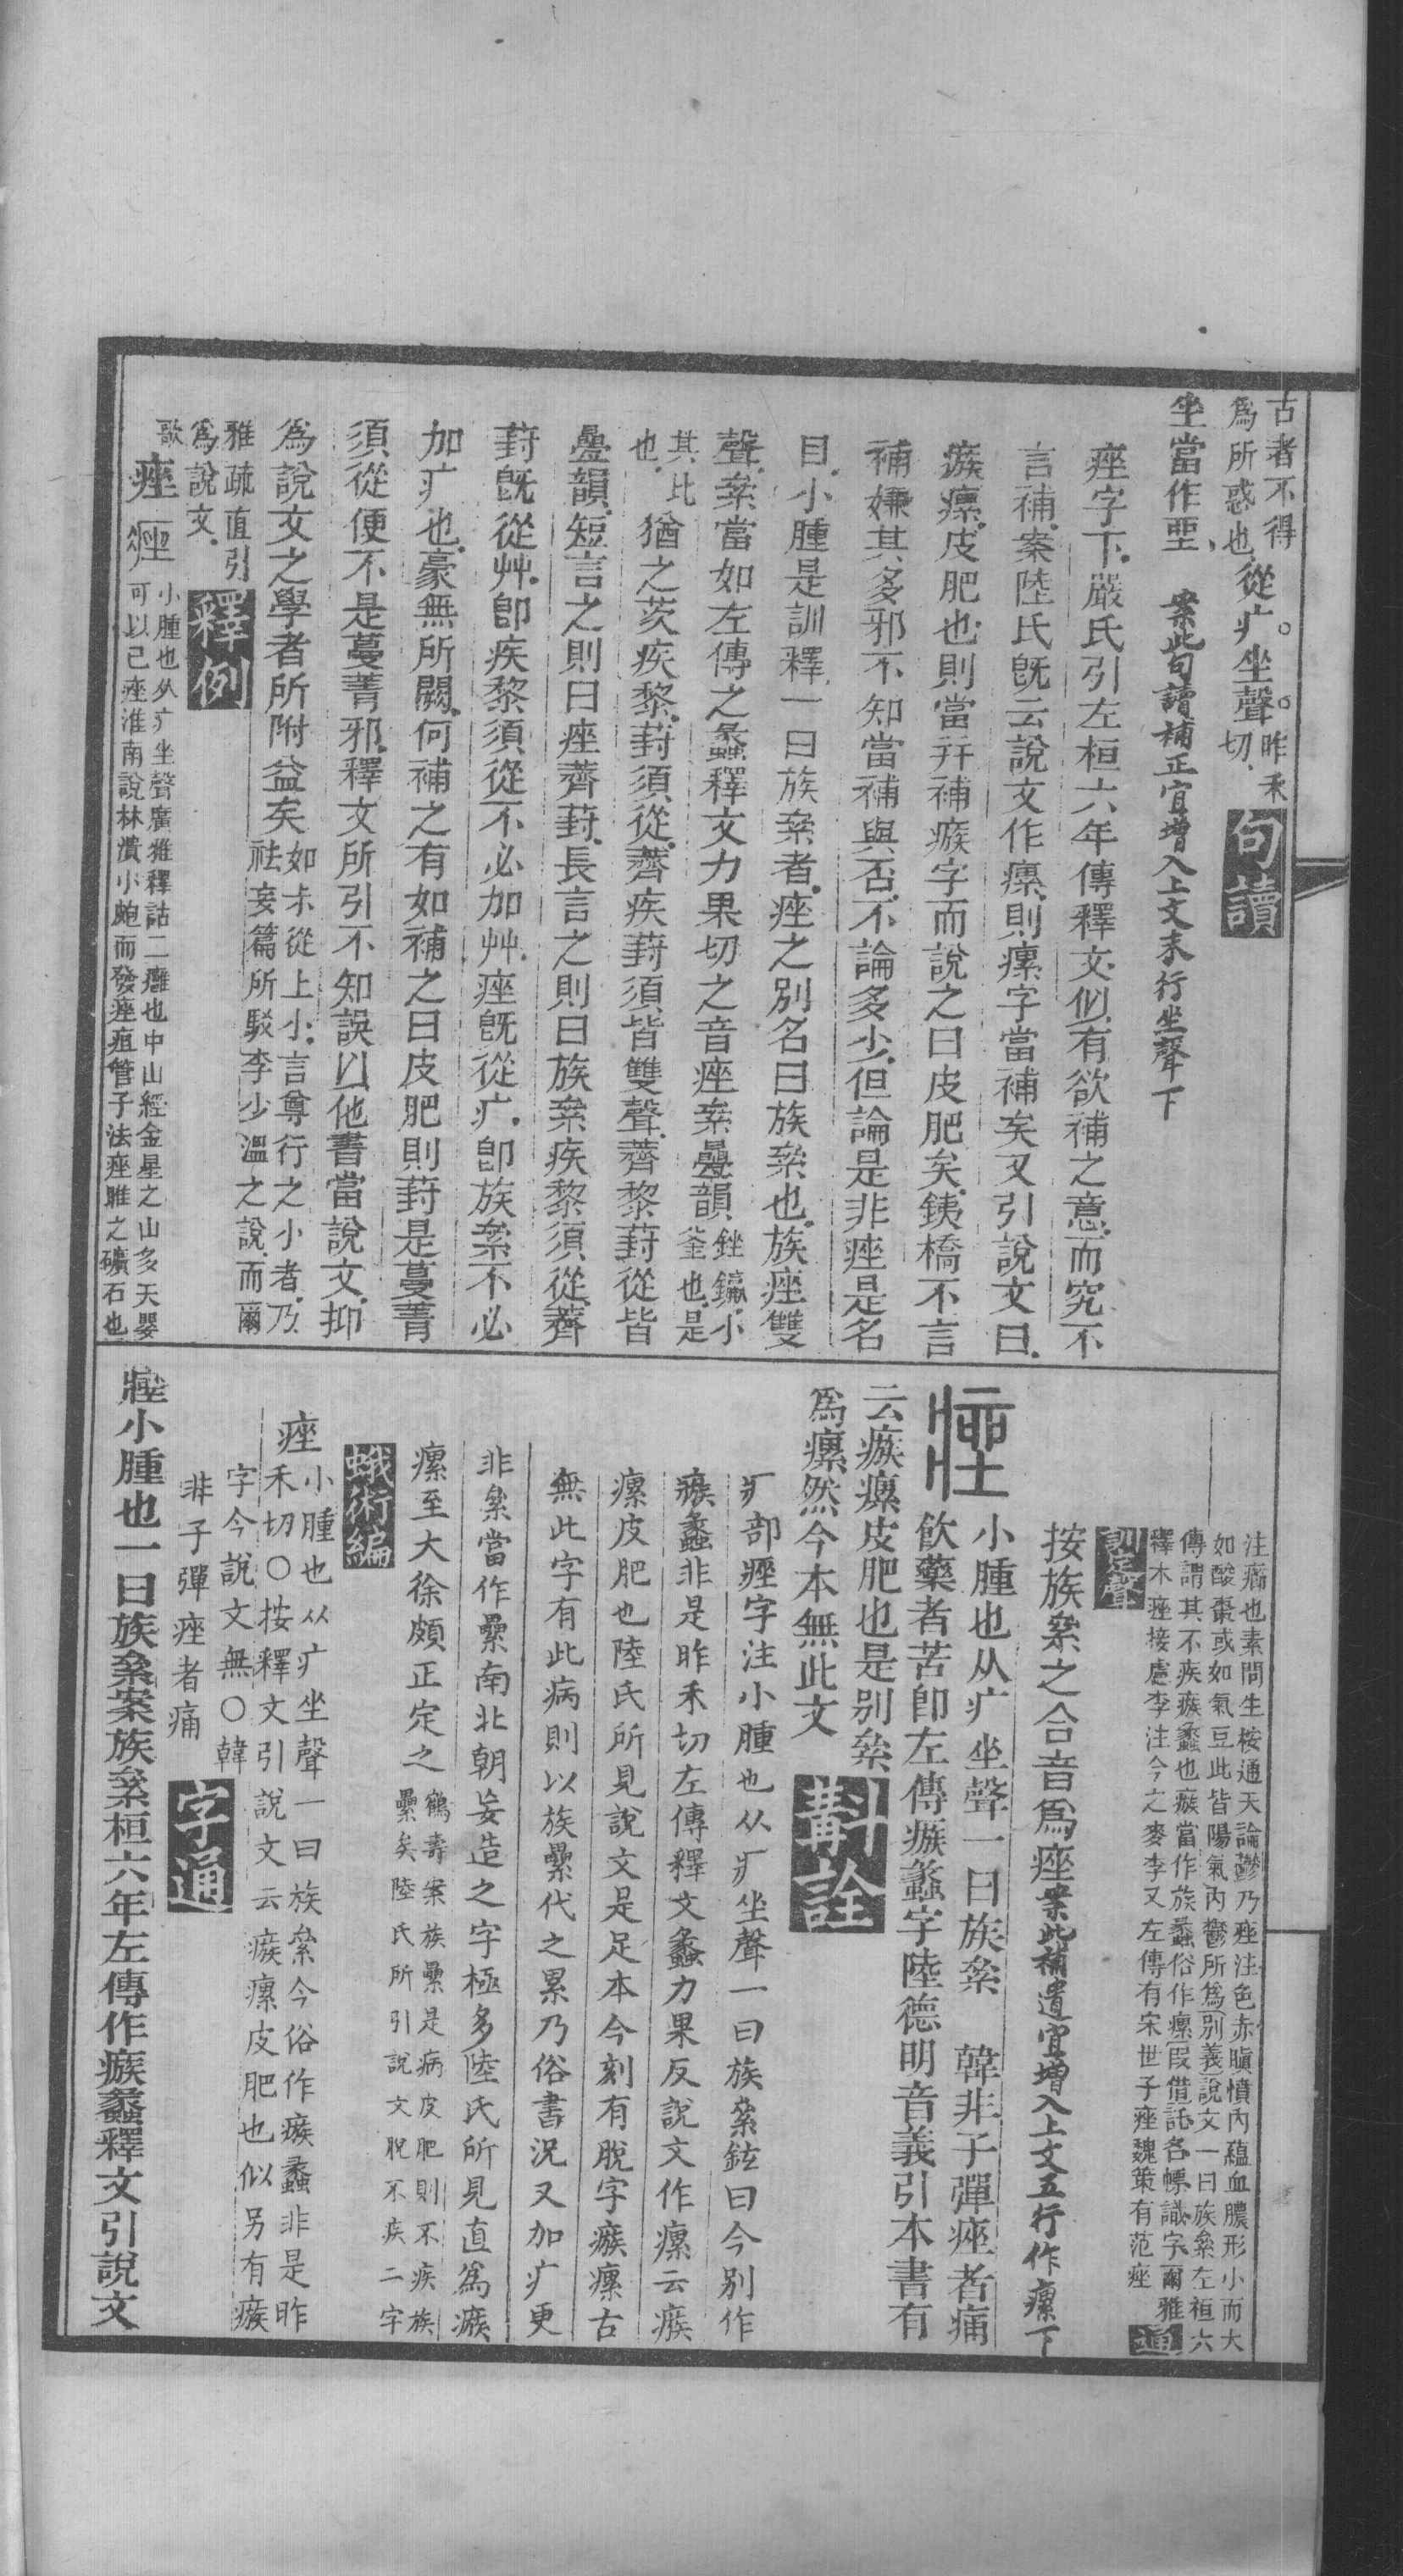 古者不得
爲所惑也從疒坐聲昨禾
切句讀
坐當作坙 案此句讀補正宜增入上文末行坐聲下
痤字下嚴氏引左桓六年傳釋文似有欲補之意而究不
言補案陸氏旣云說文作瘰則瘰字當補矣又引說文曰
瘯瘰皮肥也則當幷補瘯字而說之曰皮肥矣銕橋不言
補嫌其多邪不知當補與否不論多少但論是非痤是名
目小腫是訓釋一曰族絫者痤之別名曰族絫也族痤雙
聲絫當如左傳之蠡釋文力果切之音痤絫疊韻銼鑹小
釜也是
其比
也猶之茨疾黎葑須從薺疾葑須皆雙聲薺黎葑從皆
疊韻短言之則曰痤薺葑長言之則曰族絫疾黎須從薺
葑旣從艸卽疾黎須從不必加艸痤旣從疒卽族絫不必
加疒也豪無所闕何補之有如補之曰皮肥則葑是蔓菁
須從便不是蔓菁邪釋文所引不知誤以他書當說文抑
爲說文之學者所附益矣如尗從上小言尊行之小者乃
祛妄篇所駁李少溫之說而爾
雅疏直引
爲說文釋例
歌痤 小腫也从疒坐聲廣雅釋詁二癰也中山經金星之山多天嬰
可以已痤淮南說林潰小皰而發痤疽管子法痤雎之礦石也
注癤也素問生氣通天論鬱乃痤注色赤瞋憤內蘊血膿形小而大
如酸棗或如氣豆此皆陽氣內鬱所爲別義說文一曰族絫左桓六
傳謂其不疾瘯蠡也瘯當作族蠡俗作瘰叚借託名幖識字爾雅
釋木痤接慮李注今之麥李又左傳有宋世子痤魏策有范痤通
訓定聲
按族絫之合音爲痤案此補遺宜增入上文五行作瘰下
小腫也从疒坐聲一曰族絫 韓非子彈痤者痛
飲藥者苦卽左傳瘯蠡字陸德明音義引本書有
云瘯瘰皮肥也是別絫
爲瘰然今本無此文斠詮
疒部痤字注小腫也从疒坐聲一曰族絫鉉曰今別作
瘯蠡非是昨禾切左傳釋文蠡力果反說文作瘰云瘯
瘰皮肥也陸氏所見說文是足本今刻有脫字瘯瘰古
無此字有此病則以族纍代之累乃俗書況又加疒更
非絫當作纍南北朝妄造之字極多陸氏所見直爲瘯
瘰至大徐頗正定之鶴壽案族纍是病皮肥則不疾族
纍矣陸氏所引說文脫不疾二字
蛾術編
痤小腫也从疒坐聲一曰族絫今俗作瘯蠡非是昨
禾切〇按釋文引說文云瘯瘰皮肥也似另有瘯
字今說文無〇韓
非子彈痤者痛字通
小腫也一曰族絫案族絫桓六年左傳作瘯蠡釋文引說文